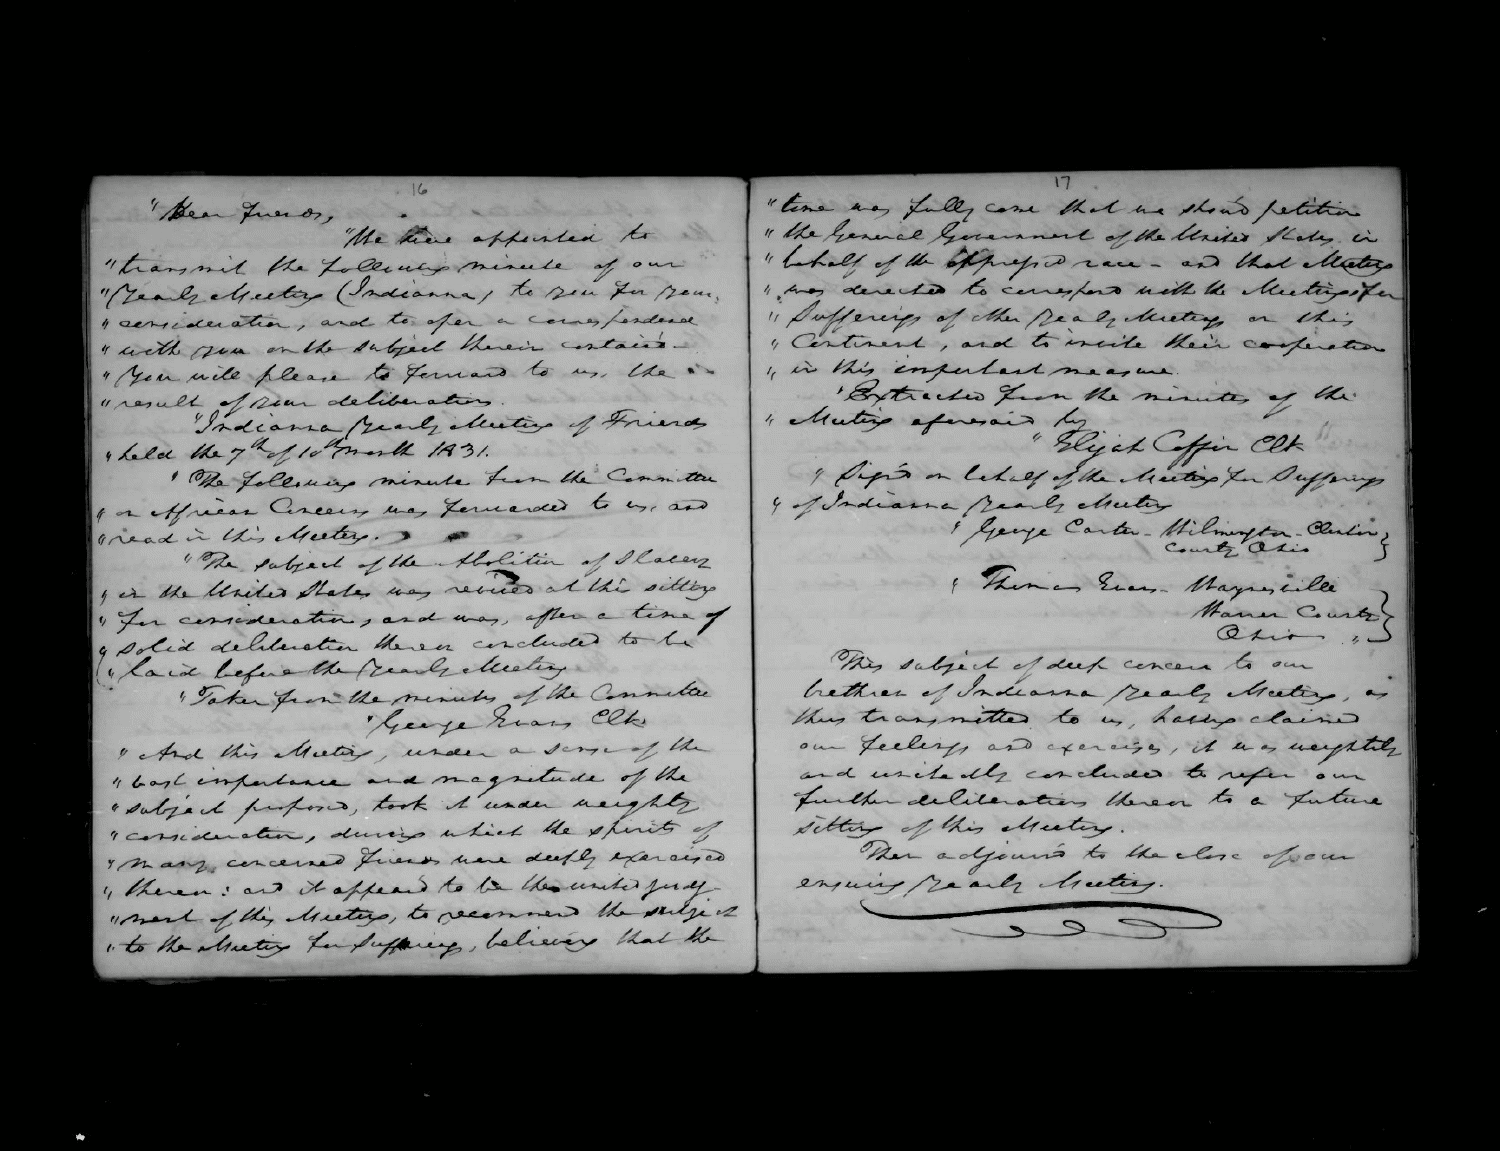 16
"Dear Friends,
"We have appointed to
"transmit the following minute of our
"Yearly Meeting (Indianna) to you for your
"consideration, and to open a correspondence
"with you on the subject therein contain'd
"You will please to forward to us, the
"result of your deliberations.
"Indianna Yearly Meeting of Friends
"held the 7th of 10th month 1831.
"The following minute from the Committee
"on African Concerns was forwarded to us, and
"read in this Meeting.
"The subject of the Abolition of Slavery
"in the United States was revived at this sitting
"for consideration, and was, after a time of
"solid deliberation thereon concluded to be
"laid before the Yearly Meeting
"Taken from the minutes of the Committee
"George Evans Clk
"And this Meeting, under a sense of the
"vast importance and magnitude of the
"subject proposed, took it under weighty
"consideration, during which the spirits of
"many concerned friends were deeply exercised
"thereon: and it appear'd to be the united judg-
"ment of this Meeting, to recommend the subject
"to the Meeting for Sufferings, believing that the
17
"time was fully come that we should petition
"the General Government of the United States, in
"behalf of the oppressed race - and that Meeting
"was directed to correspond with the Meetings for
"Sufferings of other Yearly Meetings on this
"Continent, and to invite their cooperation
"in this important measure.
"Extracted from the minutes of the
"Meeting aforesaid by
"Elijah Coffin Clk
"Sign'd on behalf of the Meeting for Sufferings
"of Indianna Yearly Meeting
"George Carter - Wilmington - Clinton
County Ohio
"Thomas Evans - Waynesville
Warren County
Ohio "
This subject of deep concern to our
brethren of Indianna Yearly Meeting, as
thus transmitted to us, having claimed
our feelings and exercises, it was weightily
and unitedly concluded to refer our
further deliberations thereon to a future
sitting of this Meeting.
Then adjourn'd to the close of our
ensuing Yearly Meeting.